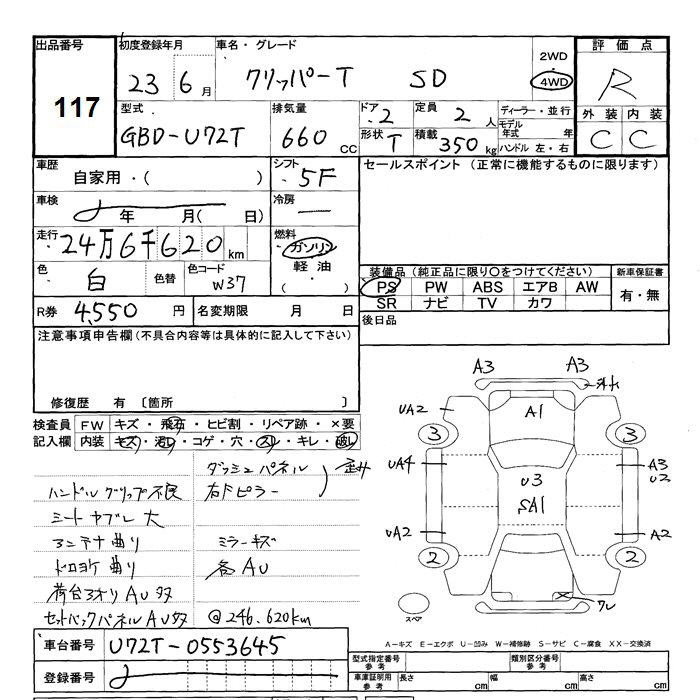 出品番号 初度登録年月 車名・グレード 評価点
117
23 6月 クリッパーT SD 2WD 4WD R
型式 排気量 ドア 定員 ディーラー・並行 外装 内装
GBD-U72T 660cc 2 2人 モデル年式 年 C C
形状 T 積載 350kg ハンドル 左・右
車歴 シフト セールスポイント (正常に機能するものに限ります)
自家用・( ) 5F
車検 年 月( 日) 冷房 ー
走行 24万6千620km 燃料 ガソリン
軽油
・( )
色 白 色替 色コード W37
装備品(純正品に限り○をつけてください) 新車保証書
PS PW ABS エアB AW 有・無
SR ナビ TV カワ
R券 4,550円 名変期限 月 日 後日品
注意事項申告欄(不具合内容等は具体的に記入して下さい)
修復歴 有 〔箇所 〕
検査員記入欄 FW キズ・飛石・ヒビ割・リペア跡・×要
内装 キズ・汚れ・コゲ・穴・スレ・キレ・破れ
ダッシュパネル
ハンドルグリップ不良 右Fピラー
シートヤブレ大
アンテナ曲り ミラーキズ
ドロヨケ曲り 各AU
荷台アオリAU多
セットバックパネルAU多 @246.620km
A3 A3
UA2 A1
3 3
UA4 U3 A3
U2
SA1
UA2 A2
2 2
スペア ワレ
A-キズ E-エクボ U-凹み W-補修跡 S-サビ C-腐食 XX-交換済
車台番号 U72T-0553645
登録番号
型式指定番号 参考 類別区分番号 参考
車庫証明用 参考 長さ cm 幅 cm 高さ cm